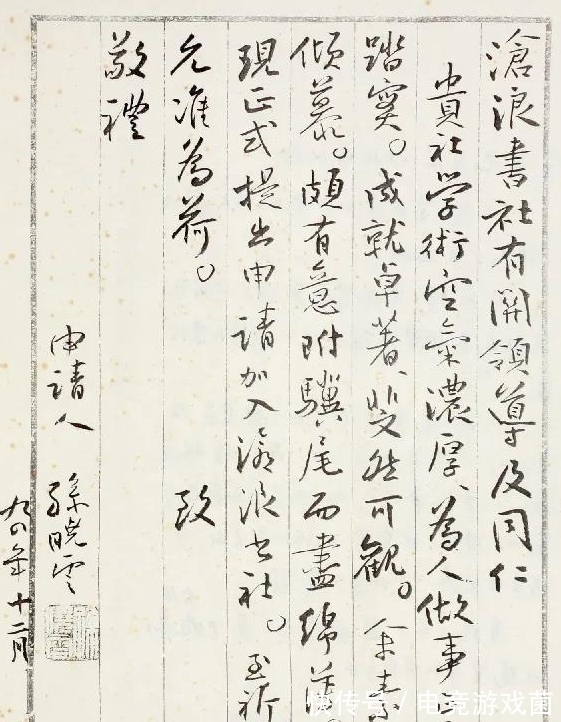 滄浪書社有関領導及同仁
貴社学術空氣濃厚、為人做事
踏实。成就卓著、斐然可觀。余素
傾慕。頗有意附驥尾而盡綿薄。
現正式提出申請加入滄浪书社。至祈
允准為荷。 致
敬禮
申請人 孫曉雲
九〇年十二月
快传号/电竞游戏菌